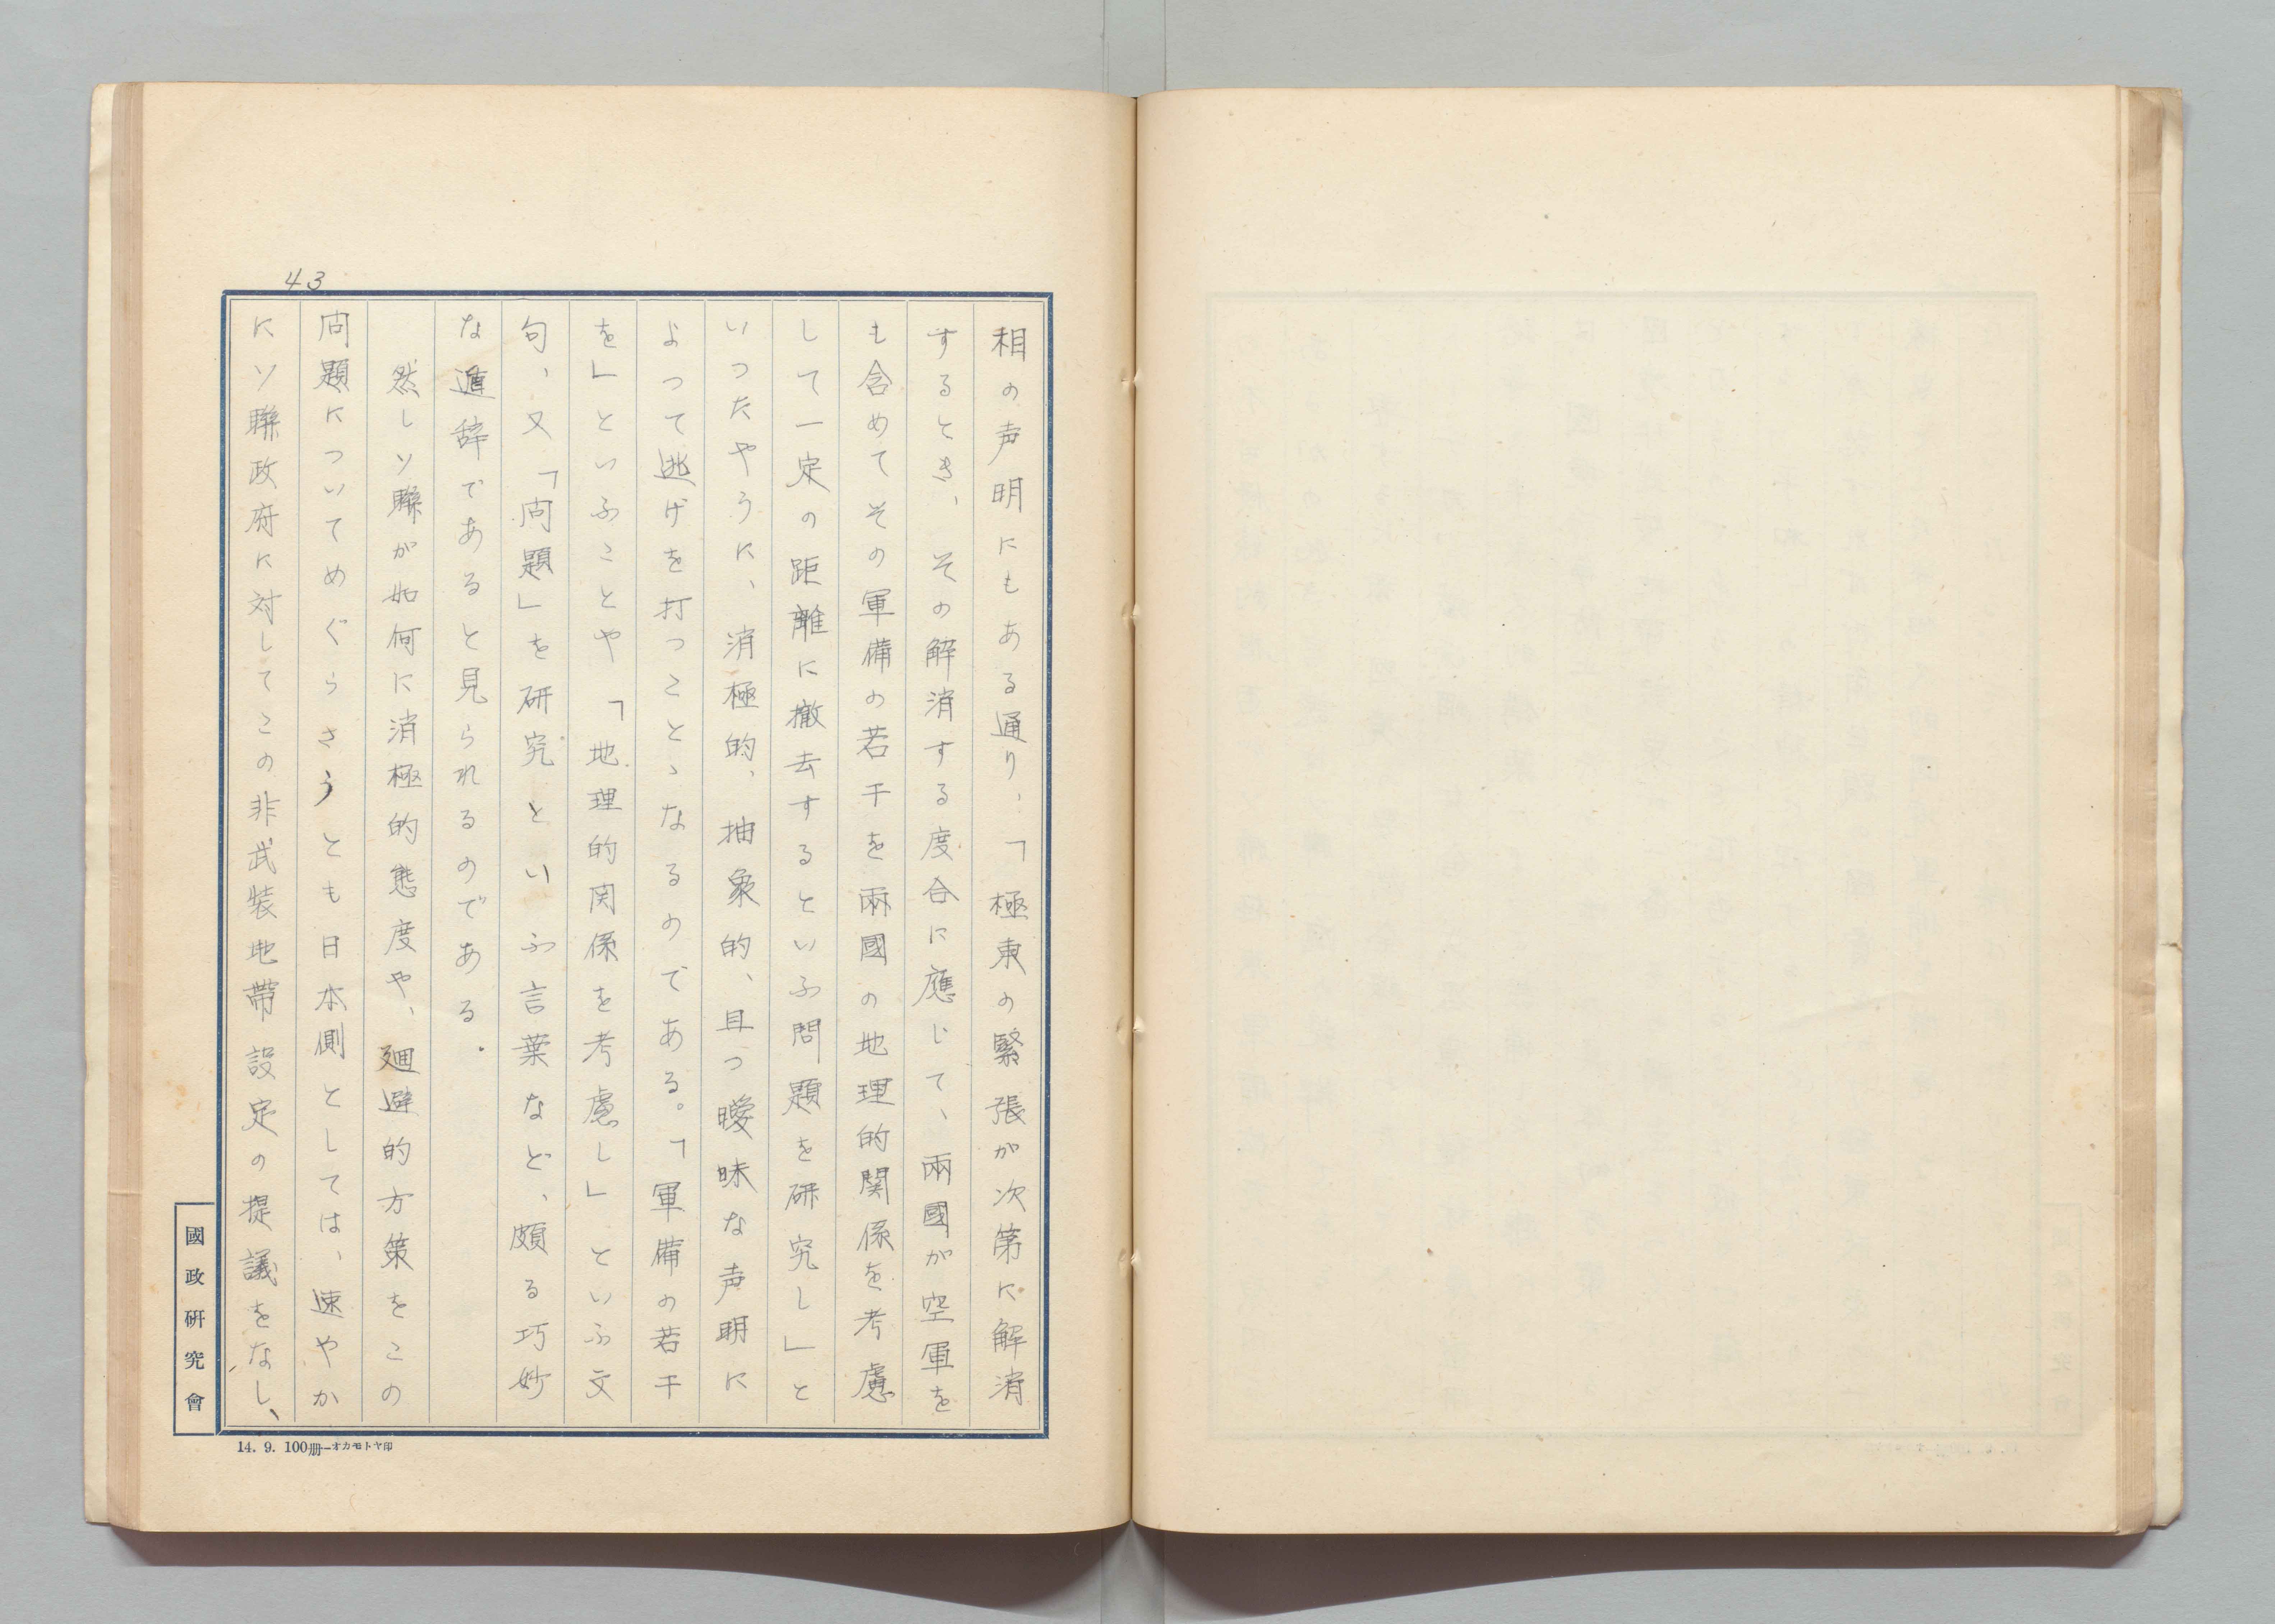 43
相の声明にもある通り、「極東の緊張が次第に解消
するとき、その解消する度合に應じて、兩國が空軍を
も含めてその軍備の若干を兩國の地理的関係を考慮
して一定の距離に撤去するといふ問題を研究し」と
いつたやうに、消極的、抽象的、且つ曖昧な声明に
よつて逃げを打つことゝなるのである。「軍備の若干
を」といふことや「地理的関係を考慮し」といふ文
句、又「問題」を研究といふ言葉など、頗る巧妙
な遁辞であると見られるのである.
然しソ聯が如何に消極的態度や、廻避的方策をこの
問題についてめぐらさうとも日本側としては、速やか
にソ聯政府に対してこの非武装地帶設定の提議をなし、
國政研究會
14. 9. 100册—オカモトヤ印